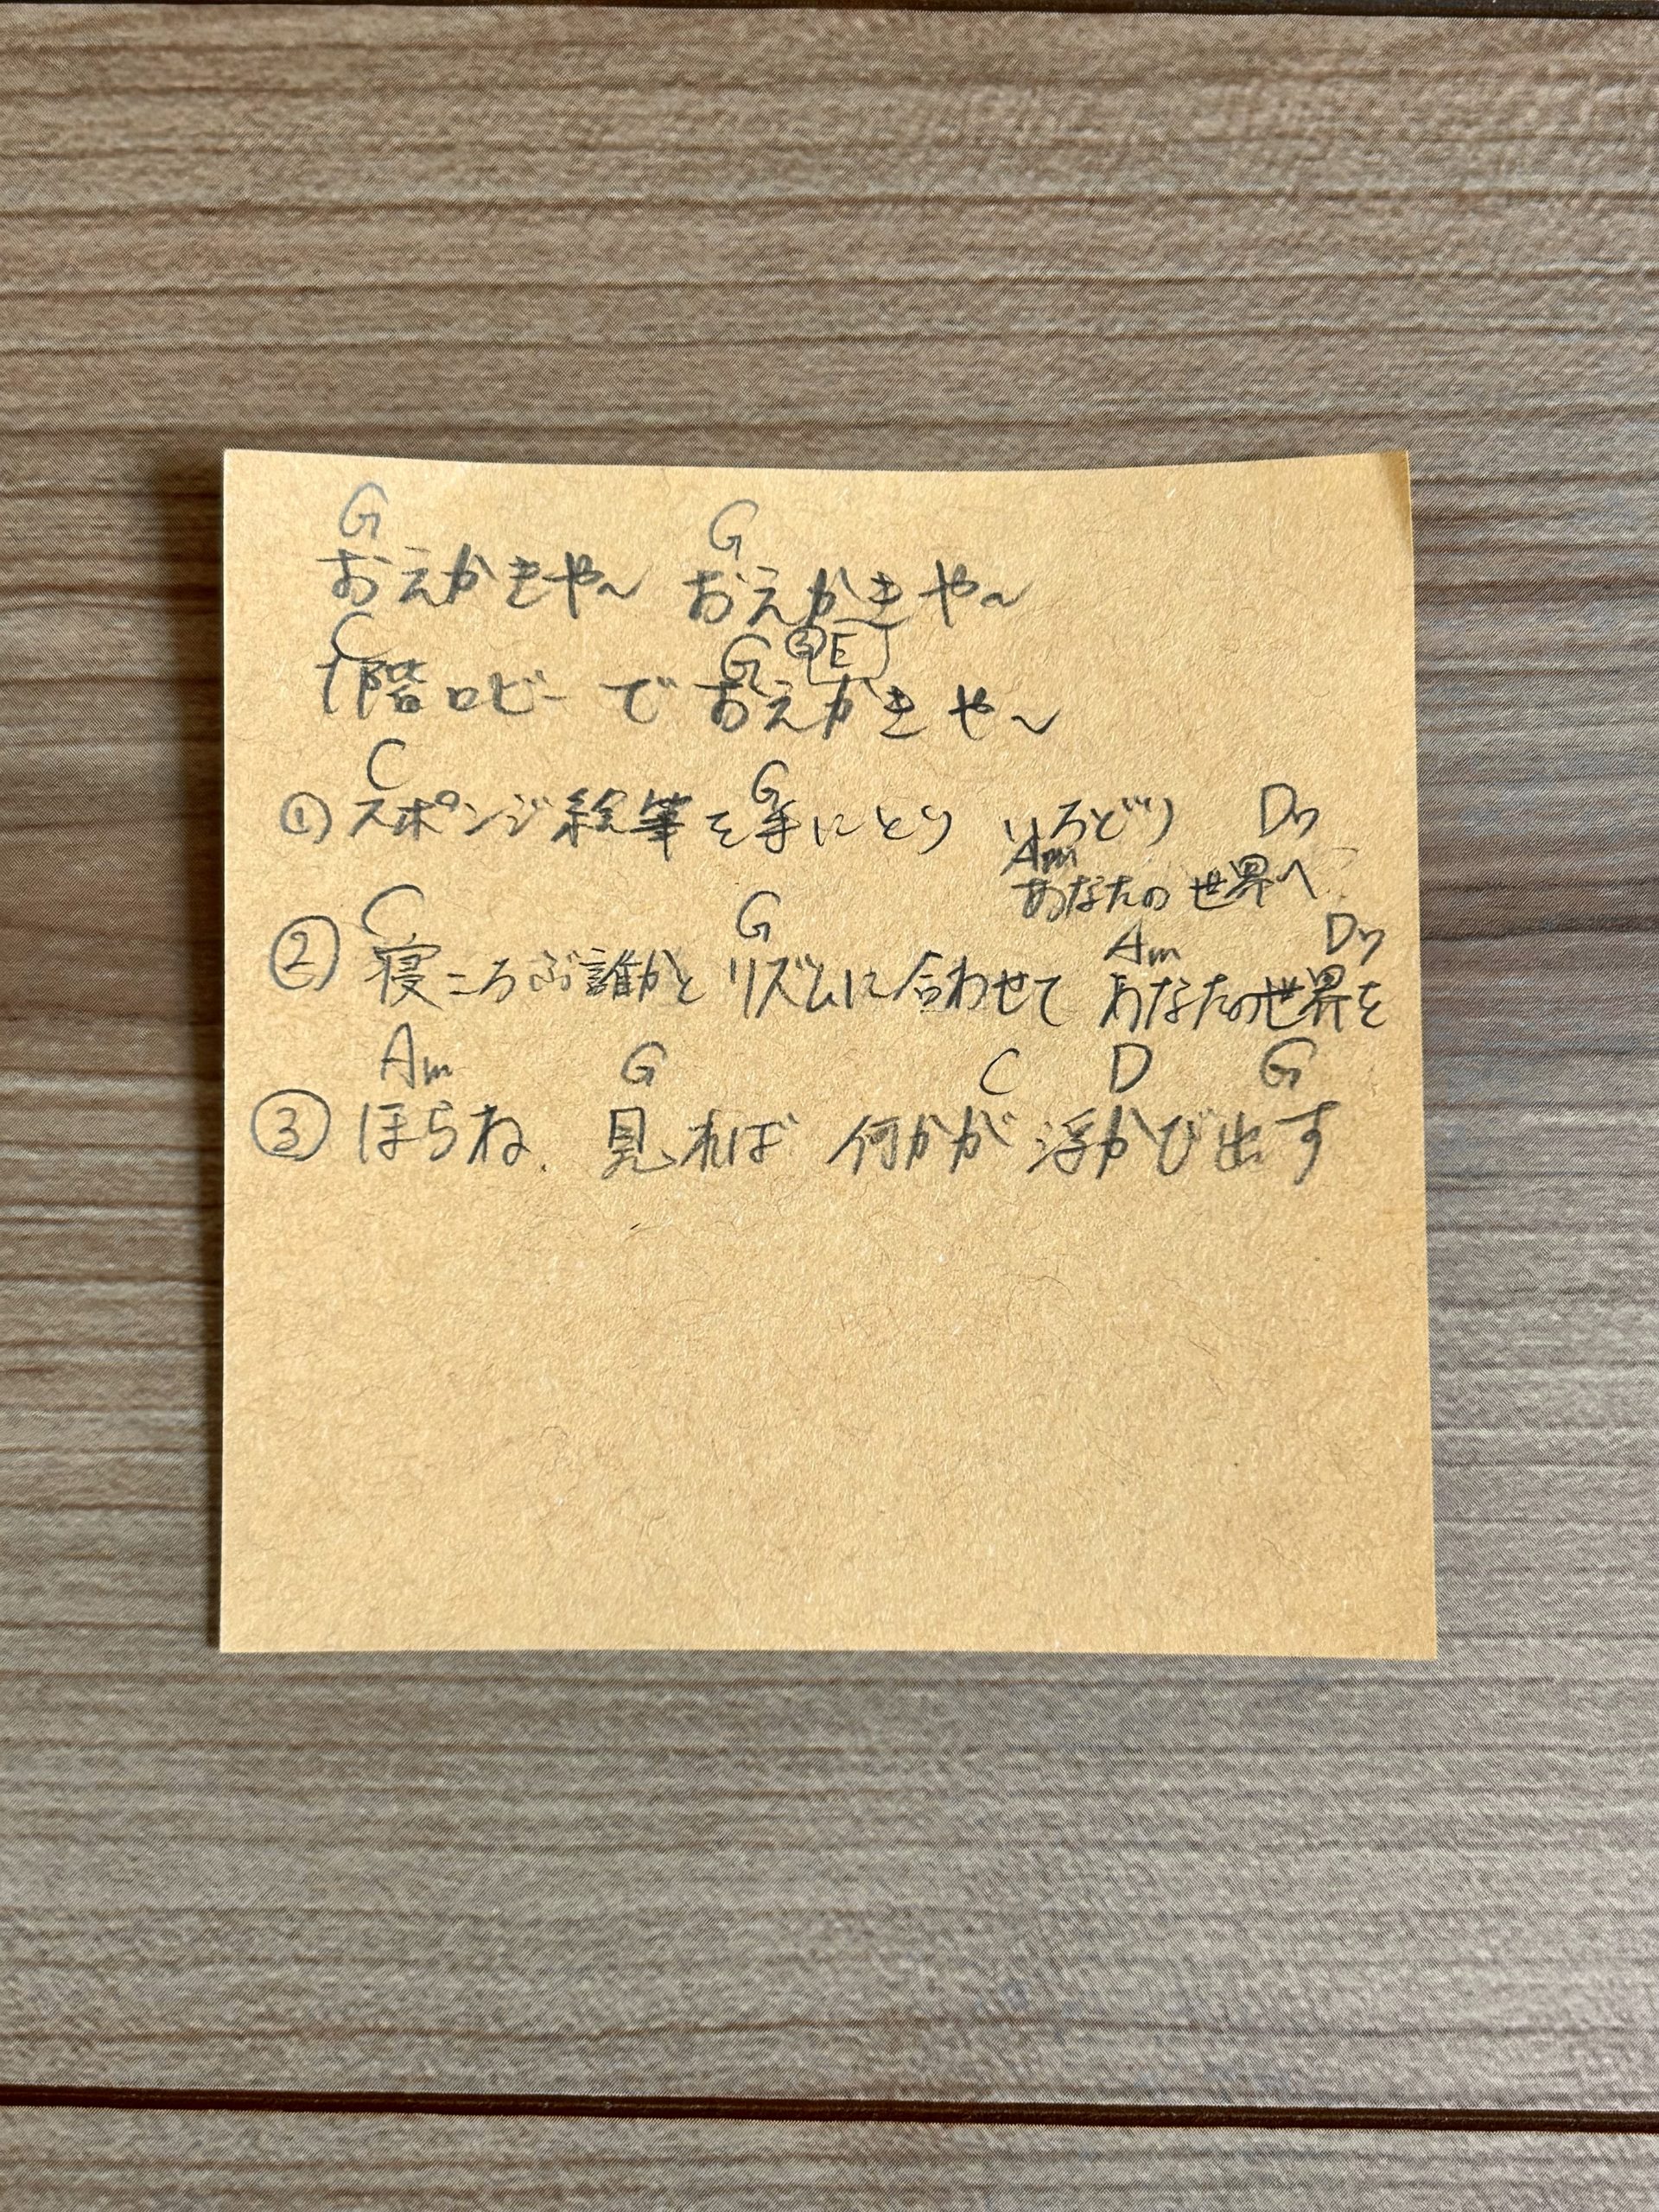 G G
おえかきや〜 おえかきや〜
C G ③E
1階ロビーで おえかきや〜
C G
① スポンジ絵筆を手にとり いろどり D7
Am
あなたの世界へ
C G Am D7
② 寝ころぶ誰かと リズムに合わせて あなたの世界を
Am G C D G
③ ほらね、見れば 何かが 浮かび出す